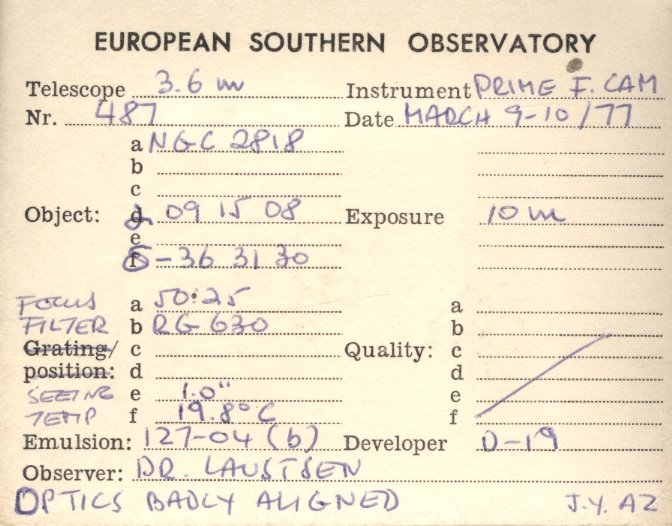 EUROPEAN SOUTHERN OBSERVATORY
Telescope 3.6 m Instrument PRIME F. CAM
Nr. 487 Date MARCH 9-10/77
a NGC 2818
b
c
Object: α 09 15 08 Exposure 10 m
e
δ -36 31 30
FOCUS a 50.25 a
FILTER b RG 630 b
Grating/ c Quality: c
position: d d
SEEING e 1.0" e
TEMP f 19.8° C f
Emulsion: 127-04 (b) Developer D-19
Observer: DR. LAUSTSEN
OPTICS BADLY ALIGNED J.Y. AZ